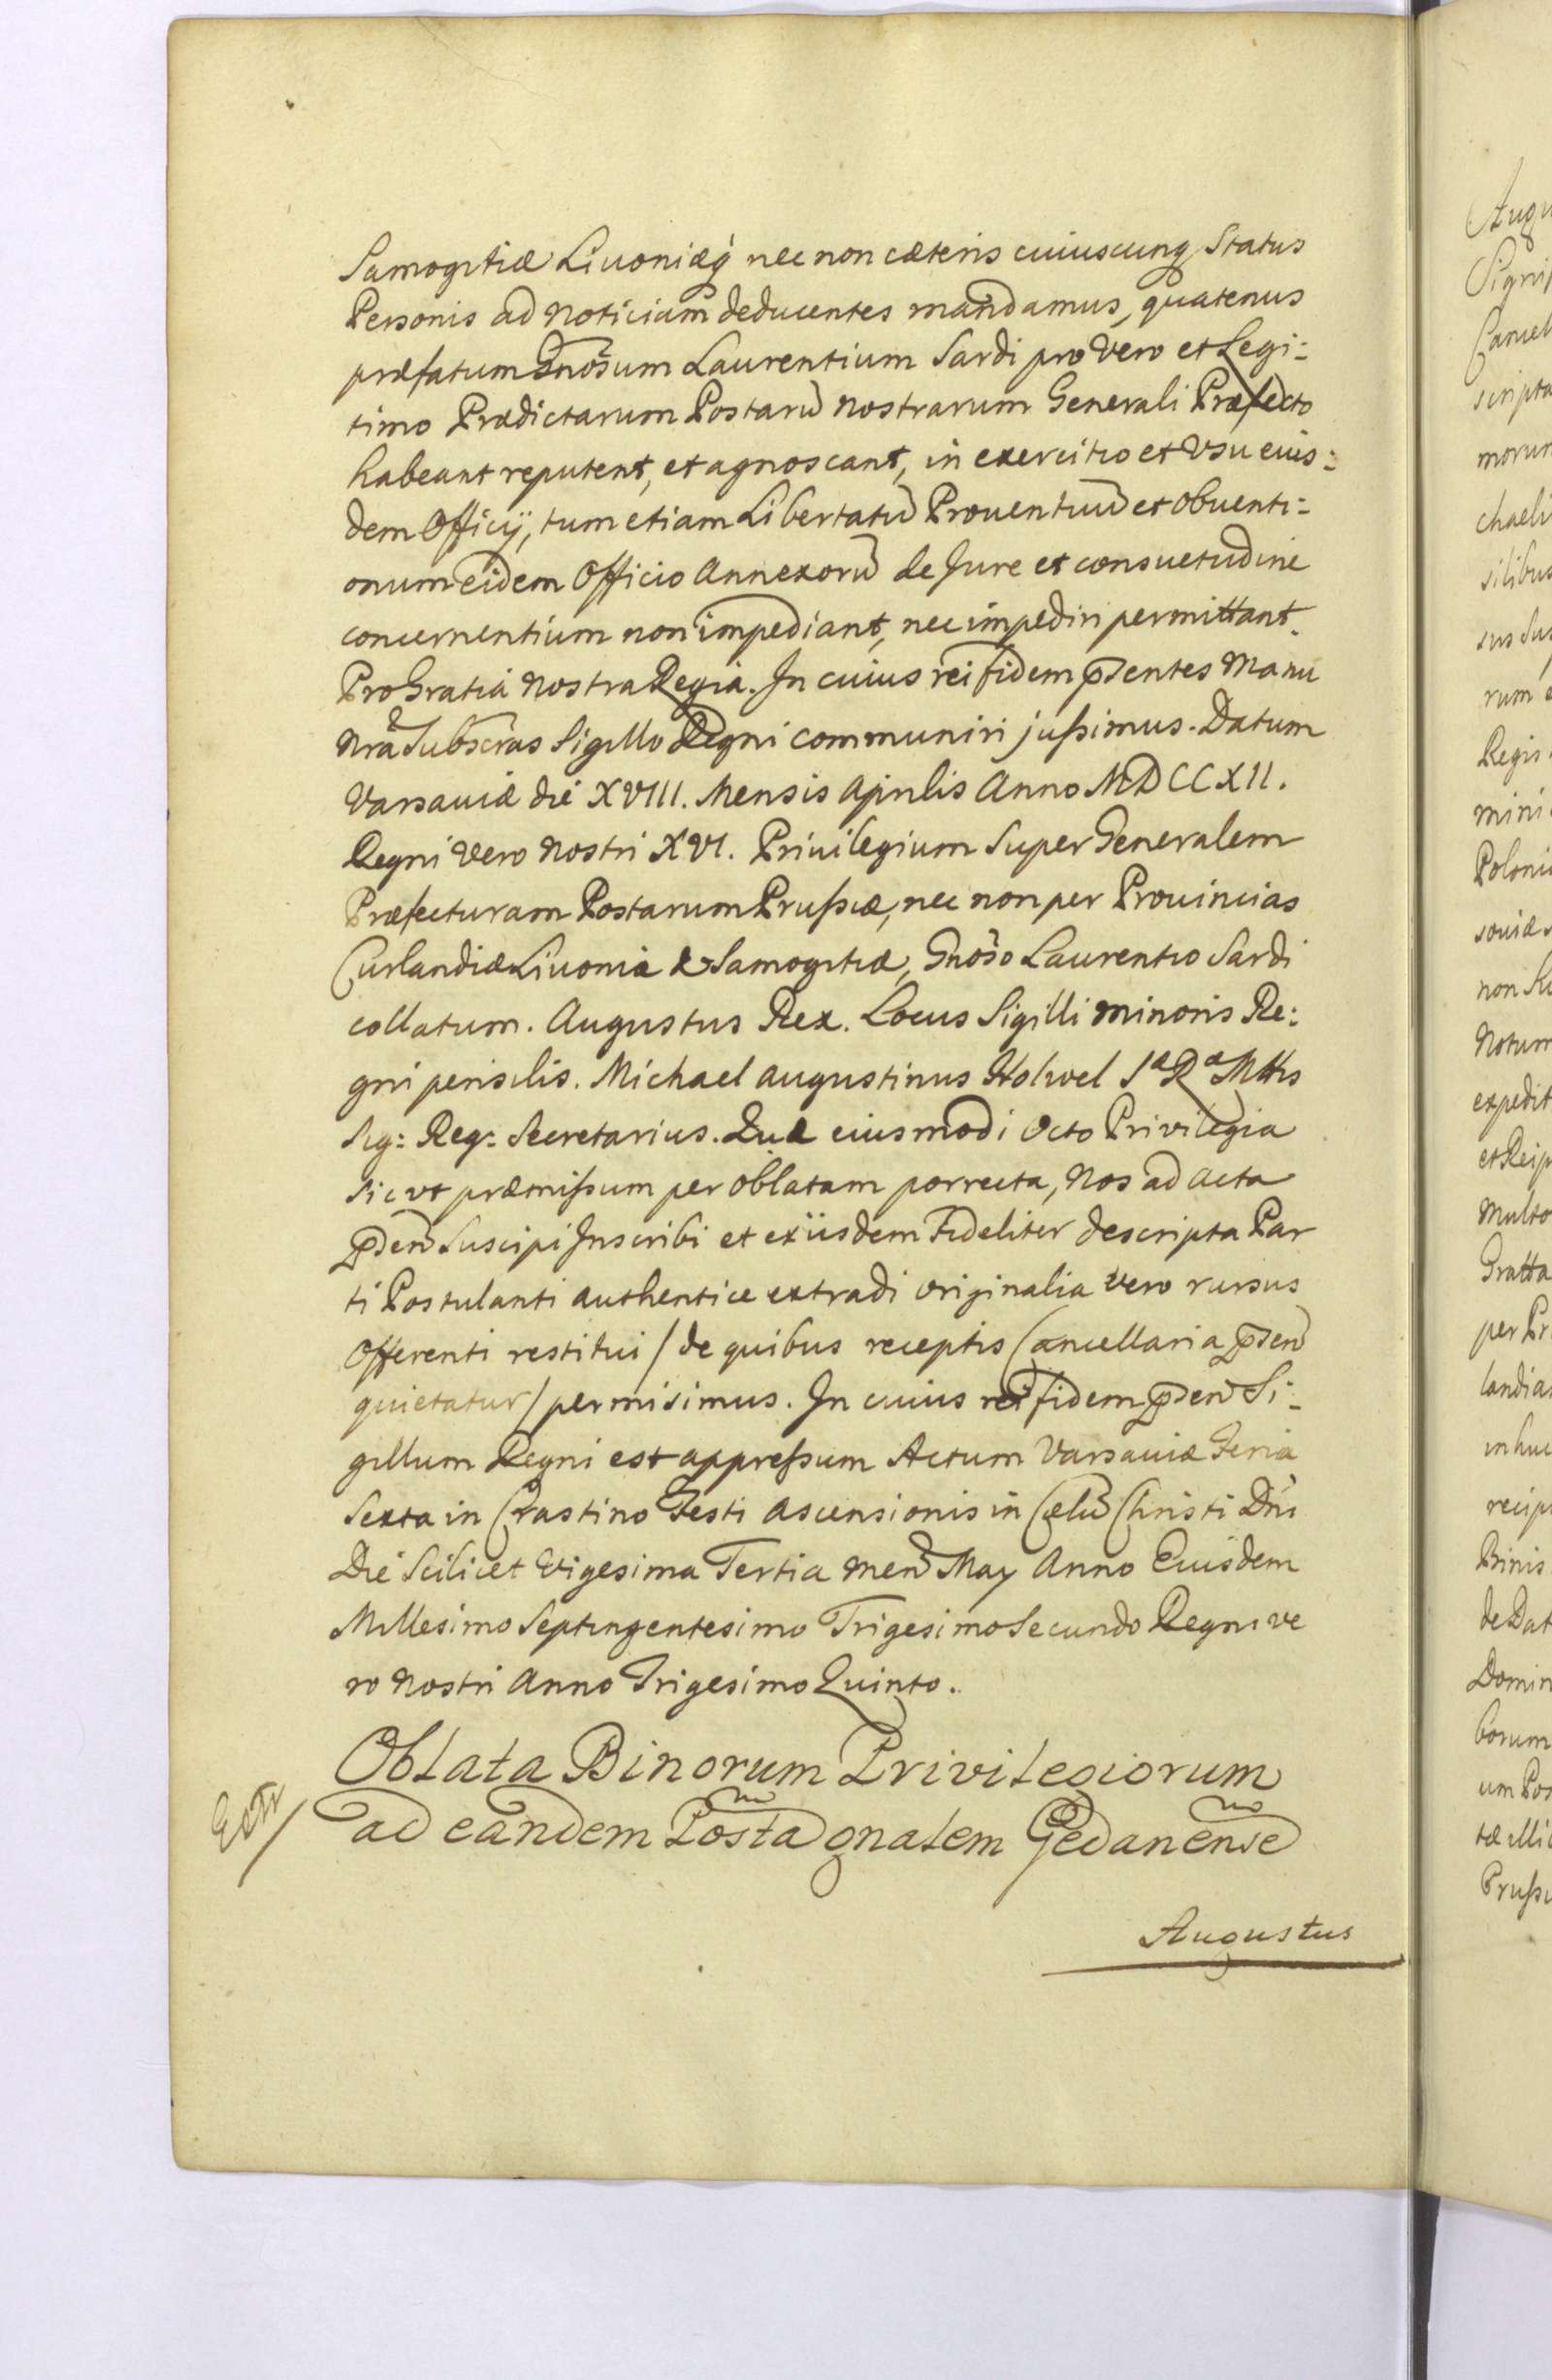 Samogitiæ Livoniæq̀ nec non cæteris cuiuscunq Status
Personis ad Noticiam deducentes mandamus, quatenus
præfatum Gnōsum Laurentium Sardi pro Vero et Legi:
timo Prædictarum Postarū nostrarum Generali Præfecto
habeant reputent, et agnoscant, in exercitio et Vsu eius:
dem Officÿ, tum etiam Libertatū Prouentuū et Obuenti:
onum eidem Officio Annexorū de Jure et consuetudine
concernentium non impediant, nec impediri permittant.
Pro Gratia Nostra Regia. In cuius rei fidem p̄sentes Manu
Nrā Subscrās Sigillo Regni communiri jußimus. Datum
Varsauiæ die XVIII. Mensis Aprilis Anno MDCCXII.
Regni Vero Nostri XVI. Priuilegium Super Generalem
Præfecturam Postarum Prußiæ, nec non per Prouincias
Curlandiæ Liuoniæ & Samogitiæ, Gnōso Laurentio Sardi
collatum. Augustus Rex. Locus Sigilli Minoris Re:
gni pensilis. Michael Augustinus Holwel Sæ Ræ Mttis
Sig: Reg: Secretarius. Quæ eiusmodi Octo Privilegia
sic vt præmißum per oblatam porrecta, Nos ad Acta
p̄sen̄ Suscipi Inscribi et exiisdem Fideliter descripta Par
ti Postulanti authentice extradi originalia vero rursus
Offerenti restitui / de quibus receptis Cancellaria p̄sen̄
quietatur / permisimus. In cuius rei fidem p̄sen̄ Si:
gillum Regni est appreßum Actum Varsauiæ Feria
Sexta in Crastino Festi Ascensionis in Cælū Christi Dnī
Die Scilicet Vigesima Tertia Men̄ May Anno Eiusdem
Millesimo Septingentesimo Trigesimo Secundo Regni ve
ro Nostri Anno Trigesimo Quinto.
Oblata Binorum Privilegiorum
ad eandem Postā gnalem Gedanensē
Augustus